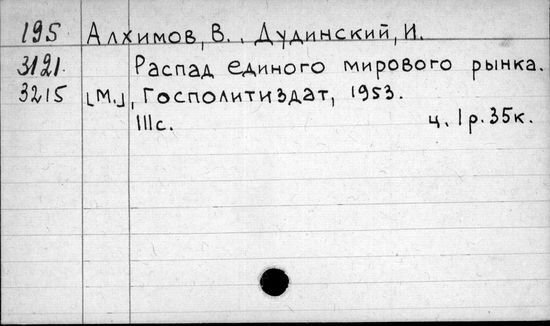 195 Алхимов, В., Дудинский, И.
3121. Распад единого мирового рынка.
3215 [М.], Госполитиздат, 1953.
111с. ц. 1р. 35к.